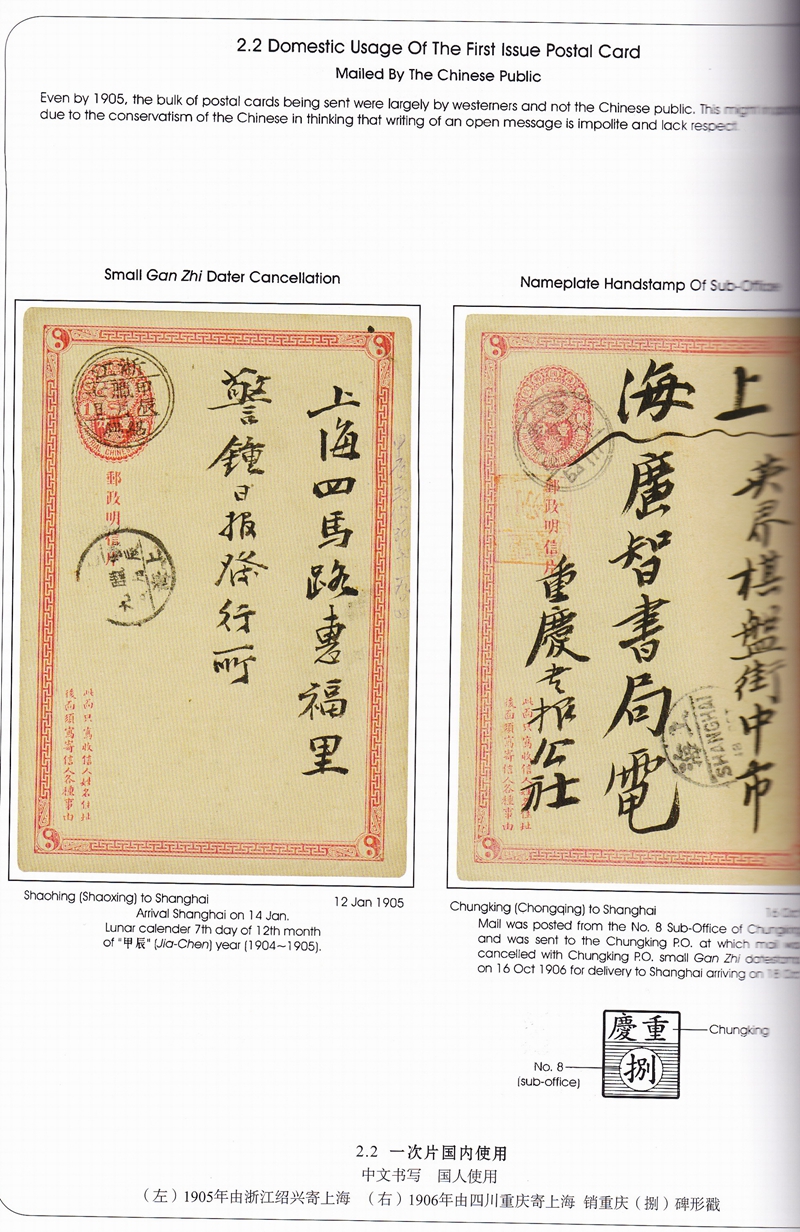 2.2 Domestic Usage Of The First Issue Postal Card
Mailed By The Chinese Public
Even by 1905, the bulk of postal cards being sent were largely by westerners and not the Chinese public. This might
due to the conservatism of the Chinese in thinking that writing of an open message is impolite and lack respect
Small Gan Zhi Dater Cancellation
上海四馬路惠福里
警鐘日报發行所
郵政明信片
此面只寫收信人姓名住址
後面須寫寄信人各種事由
Shaohing (Shaoxing) to Shanghai
12 Jan 1905
Arrival Shanghai on 14 Jan.
Lunar calender 7th day of 12th month
of "甲辰" (Jia-Chen) year (1904~1905).
Nameplate Handstamp Of Sub-Office
上海
英界棋盤街中市
廣智書局電
重慶
报公社
郵政明信片
此面只寫收信人姓名住址
後面須寫寄信人各種事由
SHANGHAI
Chungking (Chongqing) to Shanghai
16 Oct
Mail was posted from the No. 8 Sub-Office of Chungking
and was sent to the Chungking P.O. at which mail was
cancelled with Chungking P.O. small Gan Zhi datestamp
on 16 Oct 1906 for delivery to Shanghai arriving on 18 Oct
慶重
捌
Chungking
No. 8
(sub-office)
2.2 一次片国内使用
中文书写 国人使用
（左）1905年由浙江绍兴寄上海 （右）1906年由四川重庆寄上海 销重庆（捌）碑形戳